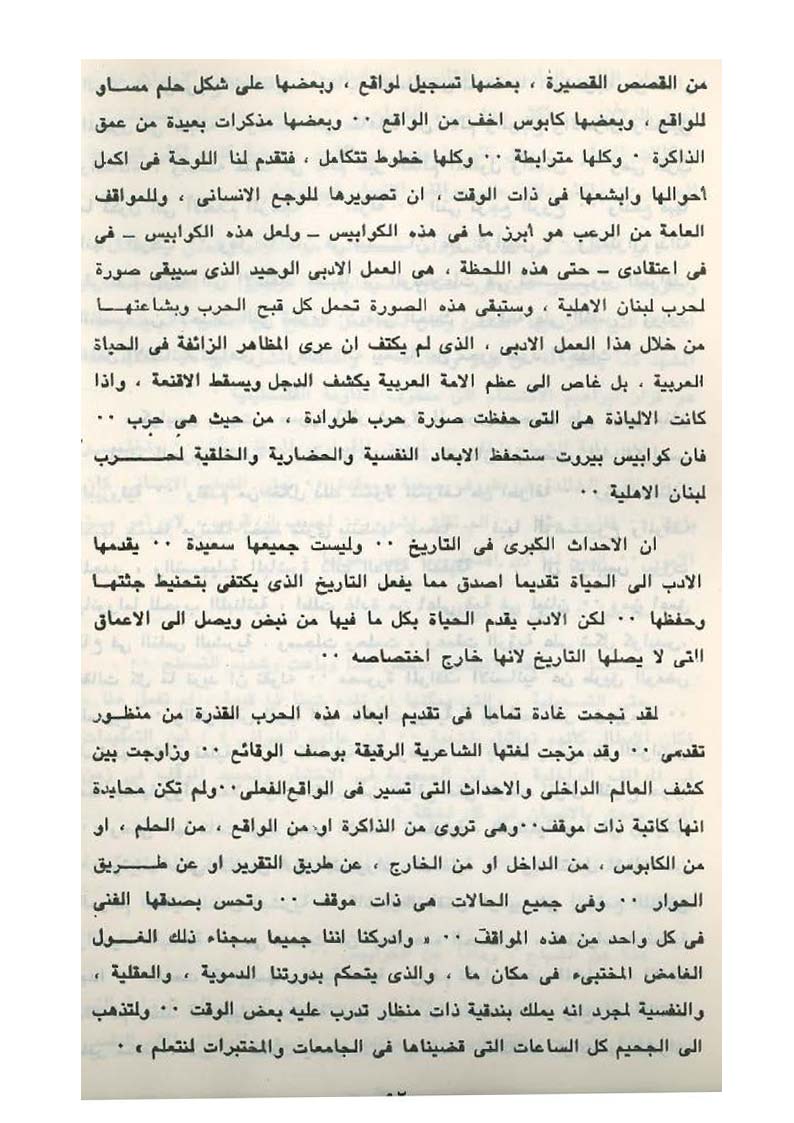 من القصص القصيرة ، بعضها تسجيل لواقع ، وبعضها على شكل حلم مساو
للواقع ، وبعضها كابوس اخف من الواقع ٠٠ وبعضها مذكرات بعيدة من عمق
الذاكرة ٠ وكلها مترابطة ٠٠ وكلها خطوط تتكامل ، فتقدم لنا اللوحة فى اكمل
أحوالها وابشعها فى ذات الوقت ، ان تصويرها للوجع الانسانى ، وللمواقف
العامة من الرعب هو أبرز ما فى هذه الكوابيس ــ ولعل هذه الكوابيس ــ فى
فى اعتقادى ــ حتى هذه اللحظة ، هى العمل الادبى الوحيد الذى سيبقى صورة
لحرب لبنان الاهلية ، وستبقى هذه الصورة تحمل كل قبح الحرب وبشاعتهـــا
من خلال هذا العمل الادبى ، الذى لم يكتف ان عرى المظاهر الزائفة فى الحياة
العربية ، بل غاص الى عظم الامة العربية يكشف الدجل ويسقط الاقنعة ، واذا
كانت الالياذة هى التى حفظت صورة حرب طروادة ، من حيث هى حرب ٠٠
فان كوابيس بيروت ستحفظ الابعاد النفسية والحضارية والخلقية لحـــــرب
لبنان الاهلية ٠٠
ان الاحداث الكبرى فى التاريخ ٠٠ وليست جميعها سعيدة ٠٠ يقدمها
الادب الى الحياة تقديما اصدق مما يفعل التاريخ الذى يكتفى بتحنيط جثتهــا
وحفظها ٠٠ لكن الادب يقدم الحياة بكل ما فيها من نبض ويصل الى الاعماق
التى لا يصلها التاريخ لانها خارج اختصاصه ٠٠
لقد نجحت غادة تماما فى تقديم ابعاد هذه الحرب القذرة من منظــور
تقدمى ٠٠ وقد مزجت لغتها الشاعرية الرقيقة بوصف الوقائع ٠٠ وزاوجت بين
كشف العالم الداخلى والاحداث التى تسير فى الواقع الفعلى٠٠ولم تكن محايدة
انها كاتبة ذات موقف٠٠وهى تروى من الذاكرة او من الواقع ، من الحلم ، او
من الكابوس ، من الداخل او من الخارج ، عن طريق التقرير او عن طـــــريق
الحوار ٠٠ وفى جميع الحالات هى ذات موقف ٠٠ وتحس بصدقها الفنى
فى كل واحد من هذه المواقف ٠٠ « وادركنا اننا جميعا سجناء ذلك الغــــول
الغامض المختبىء فى مكان ما ، والذى يتحكم بدورتنا الدموية ، والعقلية ،
والنفسية لمجرد انه يملك بندقية ذات منظار تدرب عليه بعض الوقت ٠٠ ولتذهب
الى الجحيم كل الساعات التى قضيناها فى الجامعات والمختبرات لنتعلم » ٠